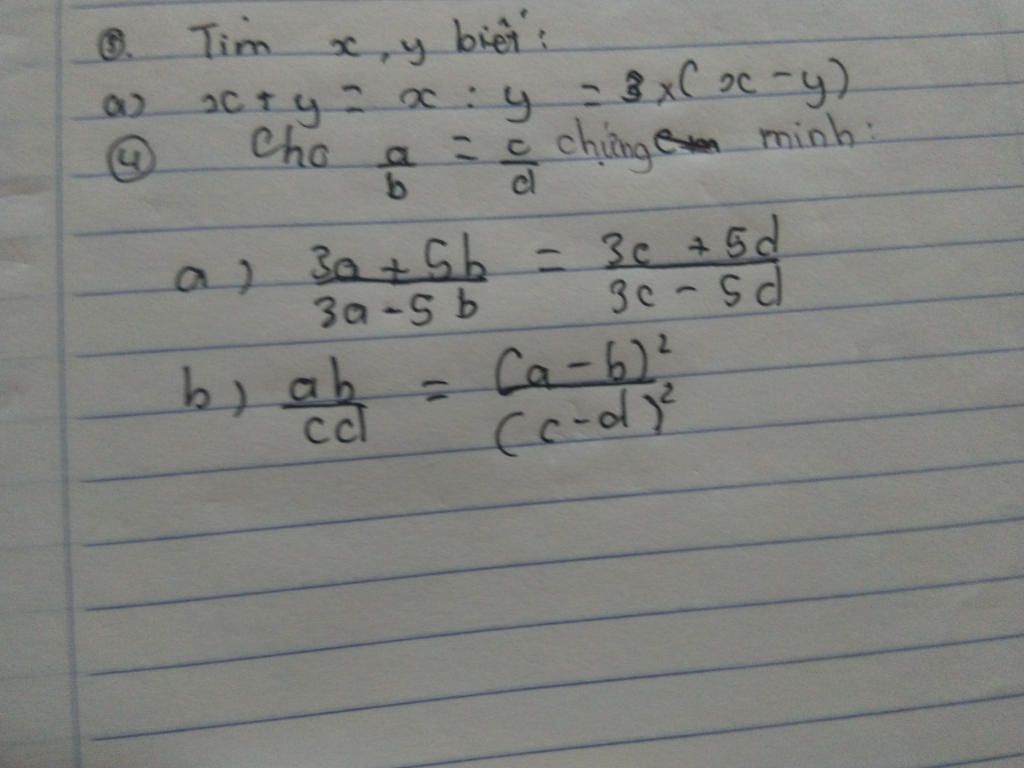 ③. Tìm x, y biết:
a) x + y = x : y = 3 x (x - y)
④ Cho a/b = c/d chứng minh:
a) 3a + 5b / 3a - 5b = 3c + 5d / 3c - 5d
b) ab / cd = (a - b)² / (c - d)²